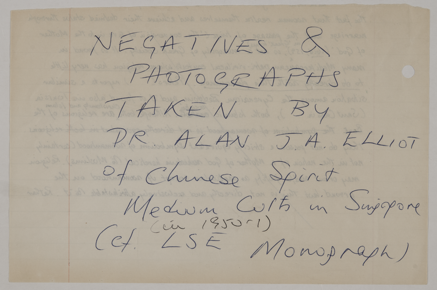 NEGATIVES &
PHOTOGRAPHS
TAKEN BY
DR ALAN J.A. ELLIOT
of Chinese Spirit
Medium Cults in Singapore
(in 1950-1)
(cf. LSE Monograph)